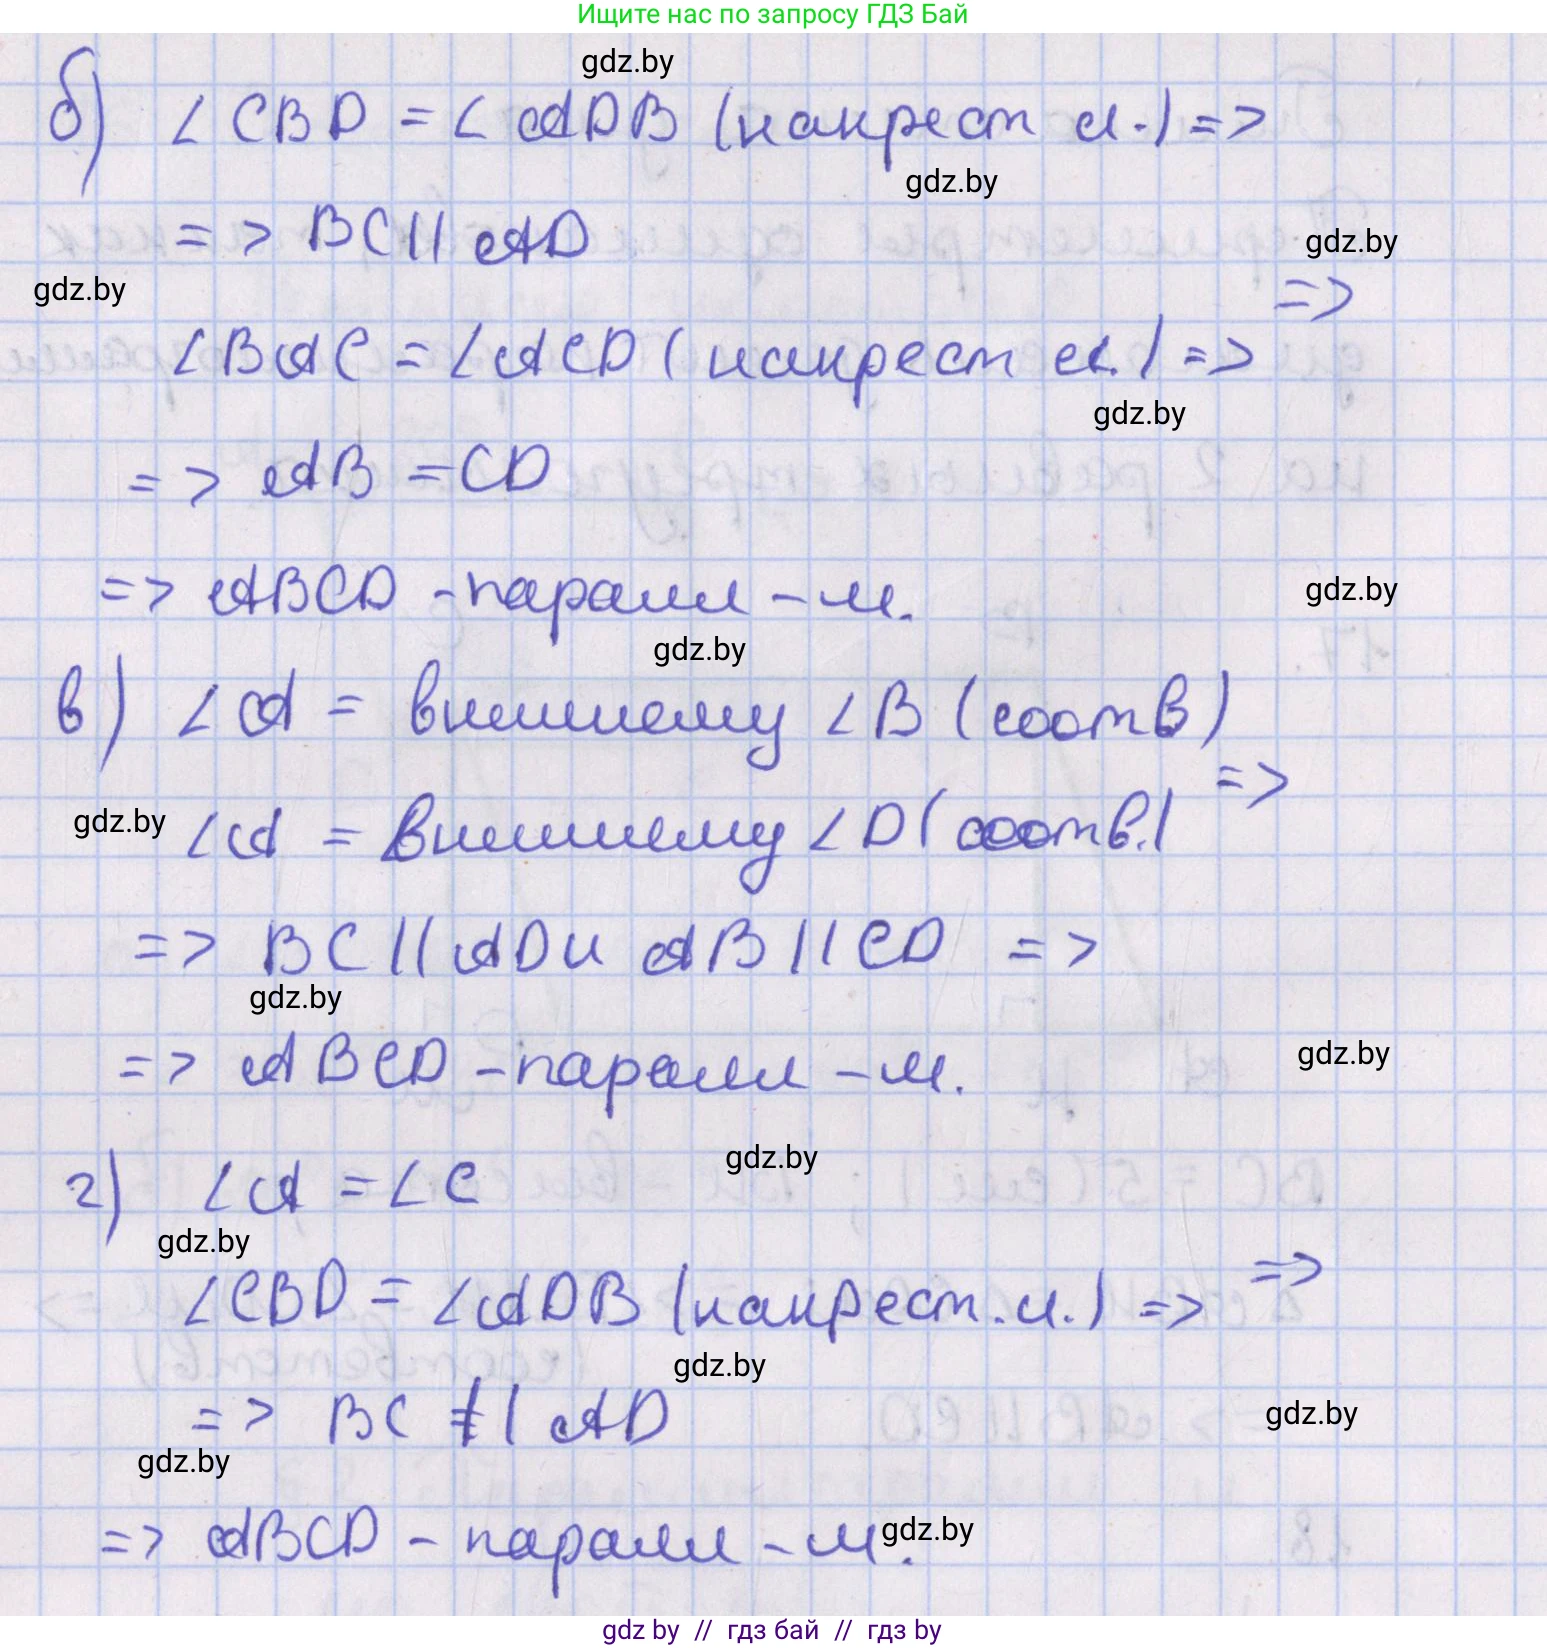 Ищите нас по запросу ГДЗ Бай
gdz.by
б) ∠CBD = ∠ADB (накрест л.) =>
gdz.by
=> BC || AD
gdz.by
gdz.by
=>
∠BAC = ∠ACD (накрест л.) =>
gdz.by
=> AB = CD
=> ABCD - паралл - м.
gdz.by
gdz.by
в) ∠A = внешнему ∠B (соотв)
=>
gdz.by
∠A = внешнему ∠D (соотв.)
=> BC || AD и AB || CD =>
gdz.by
=> ABCD - паралл - м.
gdz.by
gdz.by
г) ∠A = ∠C
gdz.by
∠CBD = ∠ADB (накрест. л.) => =>
gdz.by
=> BC || AD
gdz.by
gdz.by
=> ABCD - паралл - м.
gdz.by
gdz by // гдз бай // гдз by